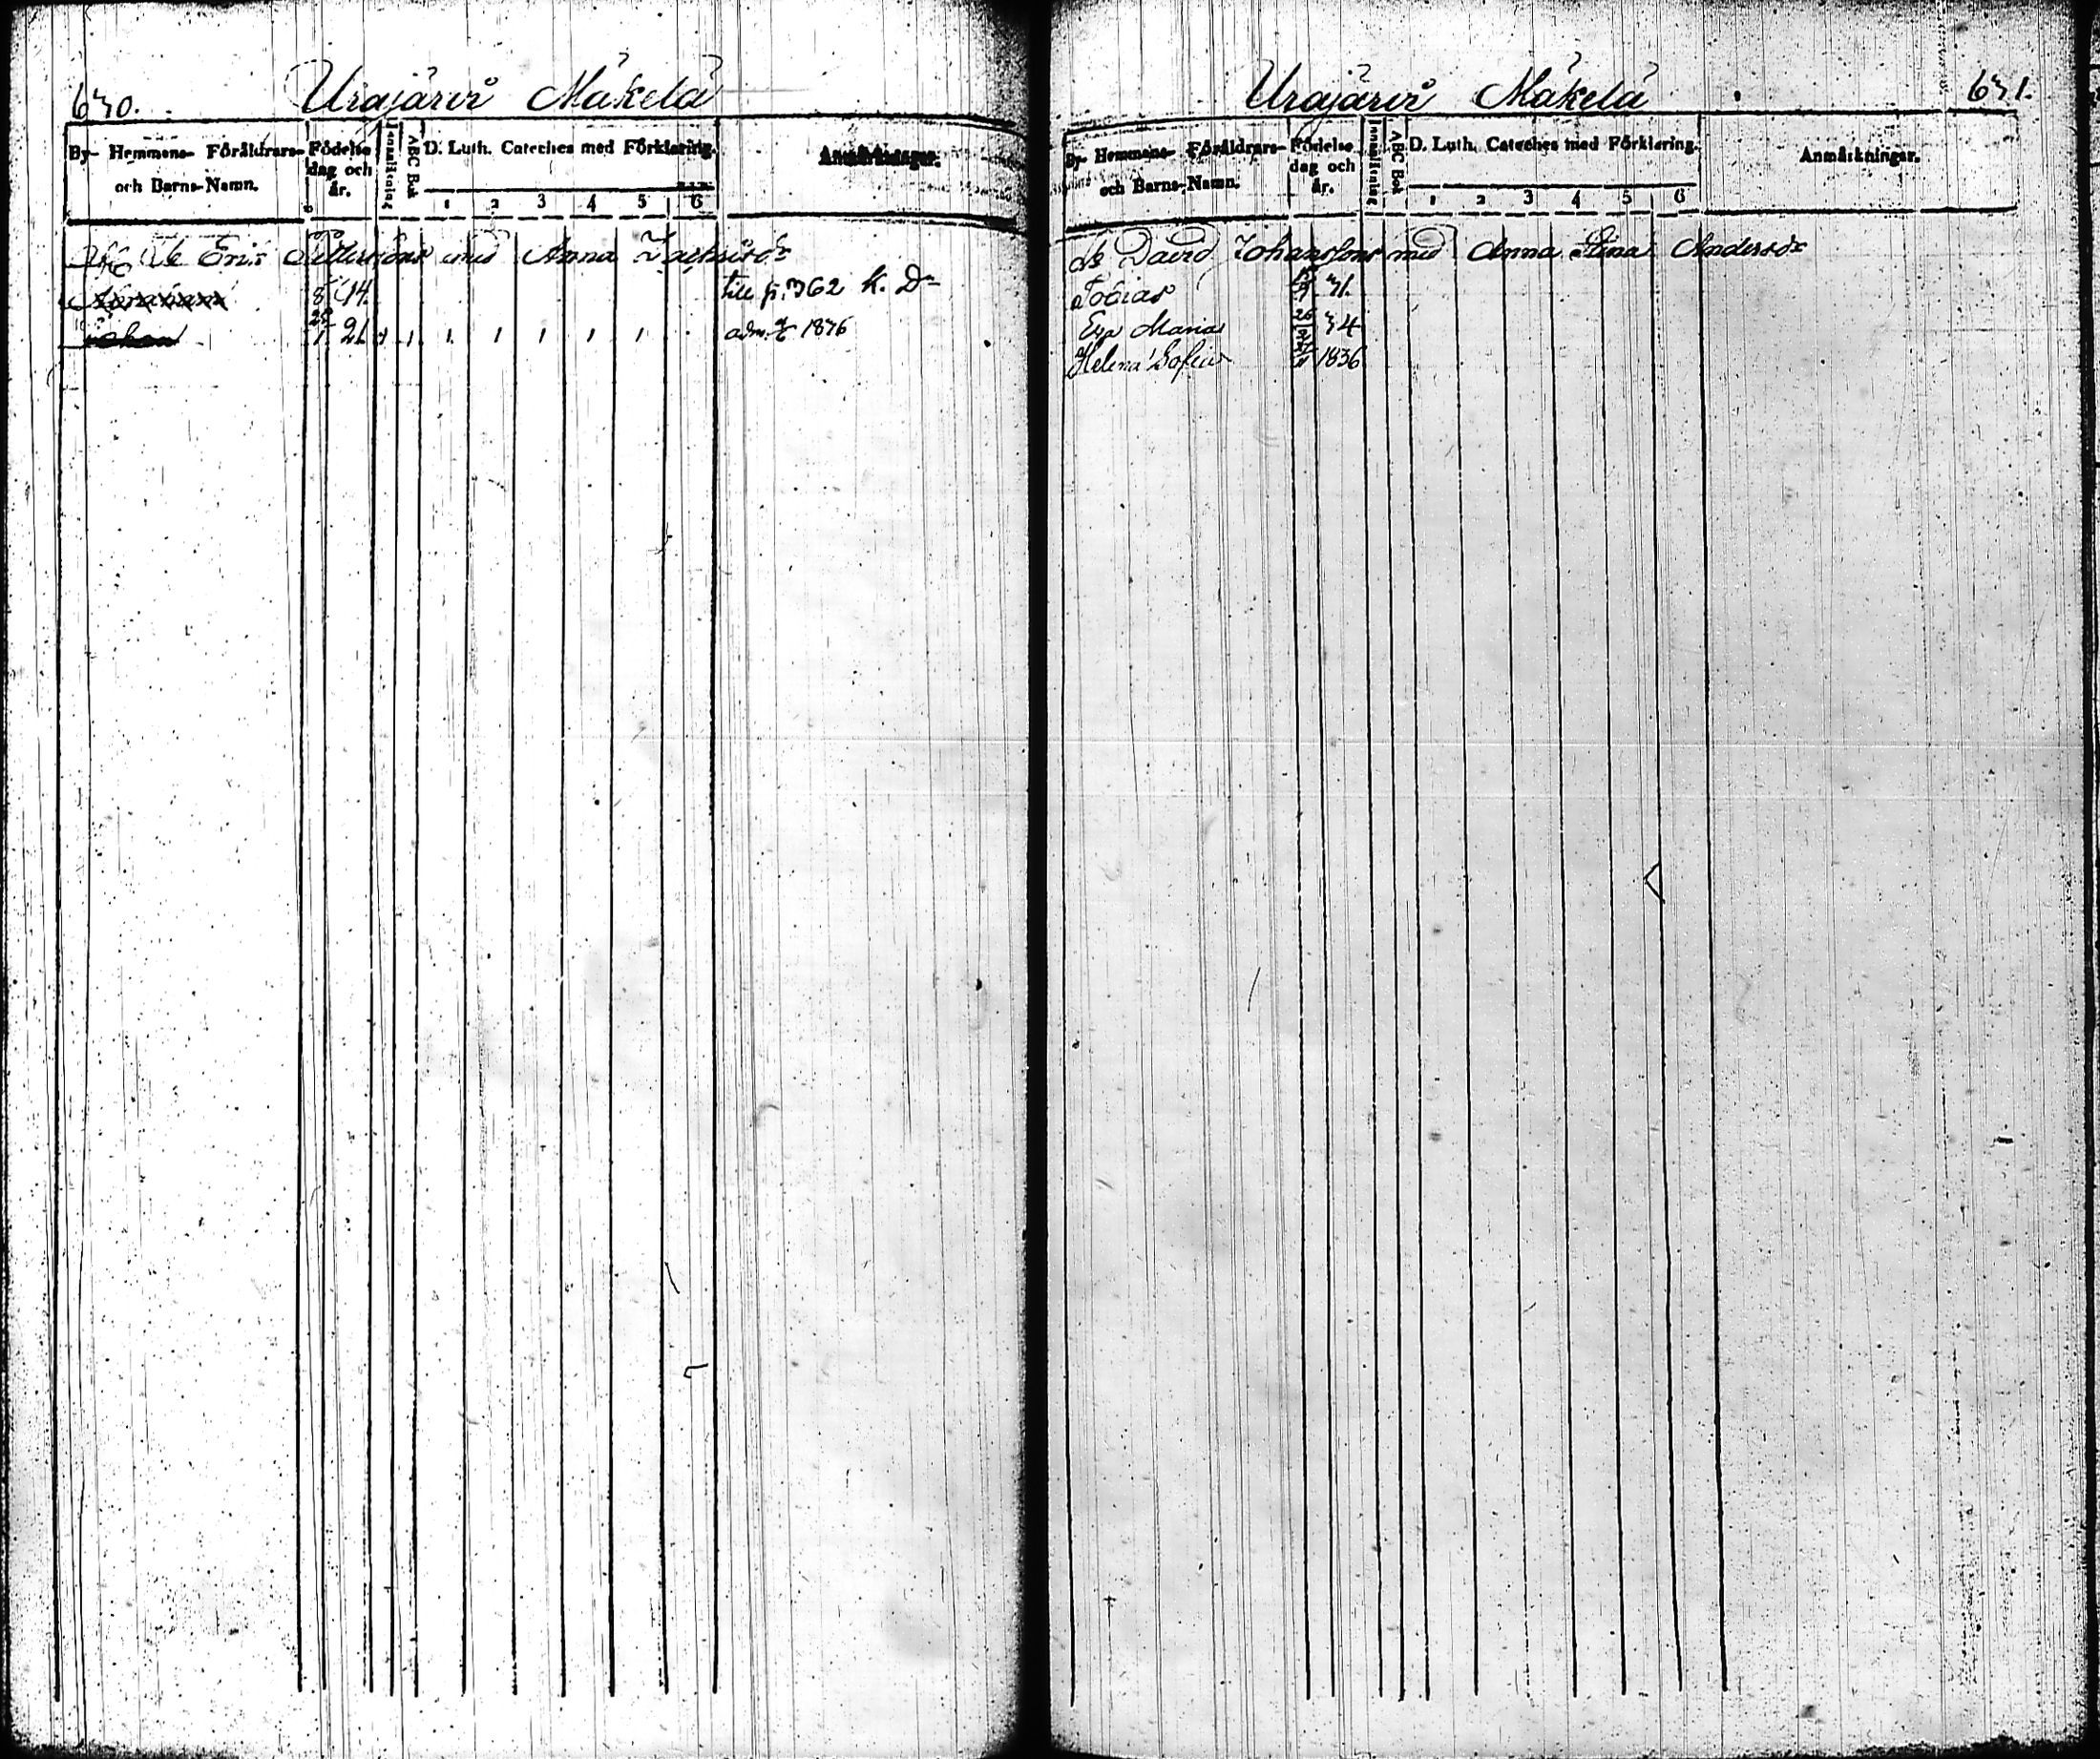 630.
Urajärvi Mäkelä
By- Hemmans- Föräldrars- och Barns-Namn.
Födelse dag och år.
Innanläsning
ABC Bok
D. Luth. Cateches med Förklaring.
1 2 3 4 5 6
Anmärkningar.
Eric med Anna
8 14. till p. 362 k. Dn
Johan 21 adm. 1836
631.
Urajärvi Mäkelä
By- Hemmans- Föräldrars- och Barns-Namn.
Födelse dag och år.
Innanläsning
ABC Bok
D. Luth. Cateches med Förklaring.
1 2 3 4 5 6
Anmärkningar.
David Johansson med Anna Stina Andersdr
Tobias 31.
Eva Maria 26 34
Helena Sofia 1836